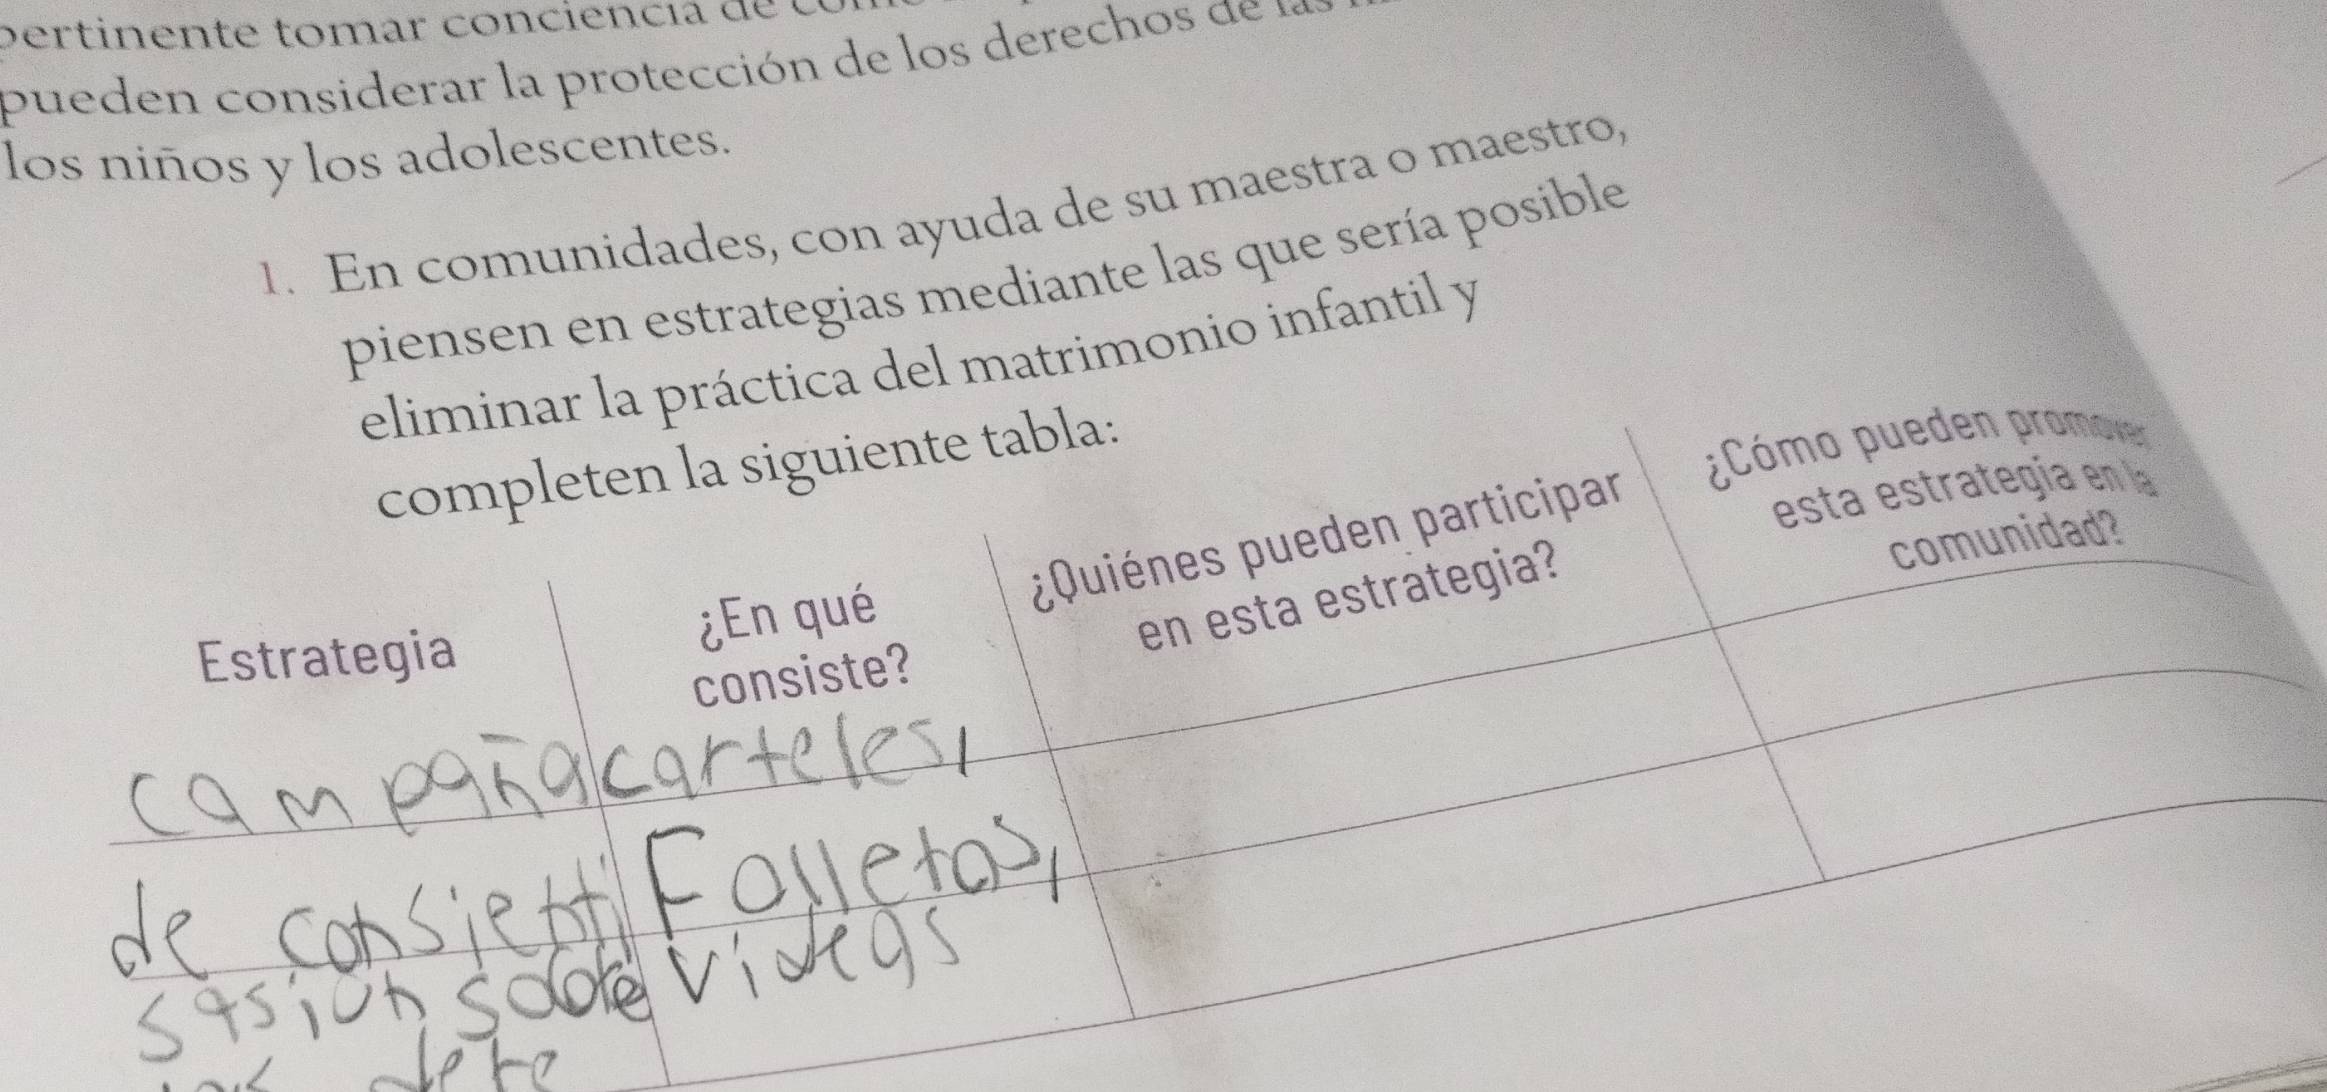 pertinente tomar conciencia de
pueden considerar la protección de los derechos de las
los niños y los adolescentes.
1. En comunidades, con ayuda de su maestra o maestro,
piensen en estrategias mediante las que sería posible
eliminar la práctica del matrimonio infantil y
completen la siguiente tabla:
Estrategia
¿En qué
consiste?
¿Quiénes pueden participar
en esta estrategia?
¿Cómo pueden promover
esta estrategia en la
comunidad?
campaña
de consienti
sasion sobre
carteles,
Folletos,
videos